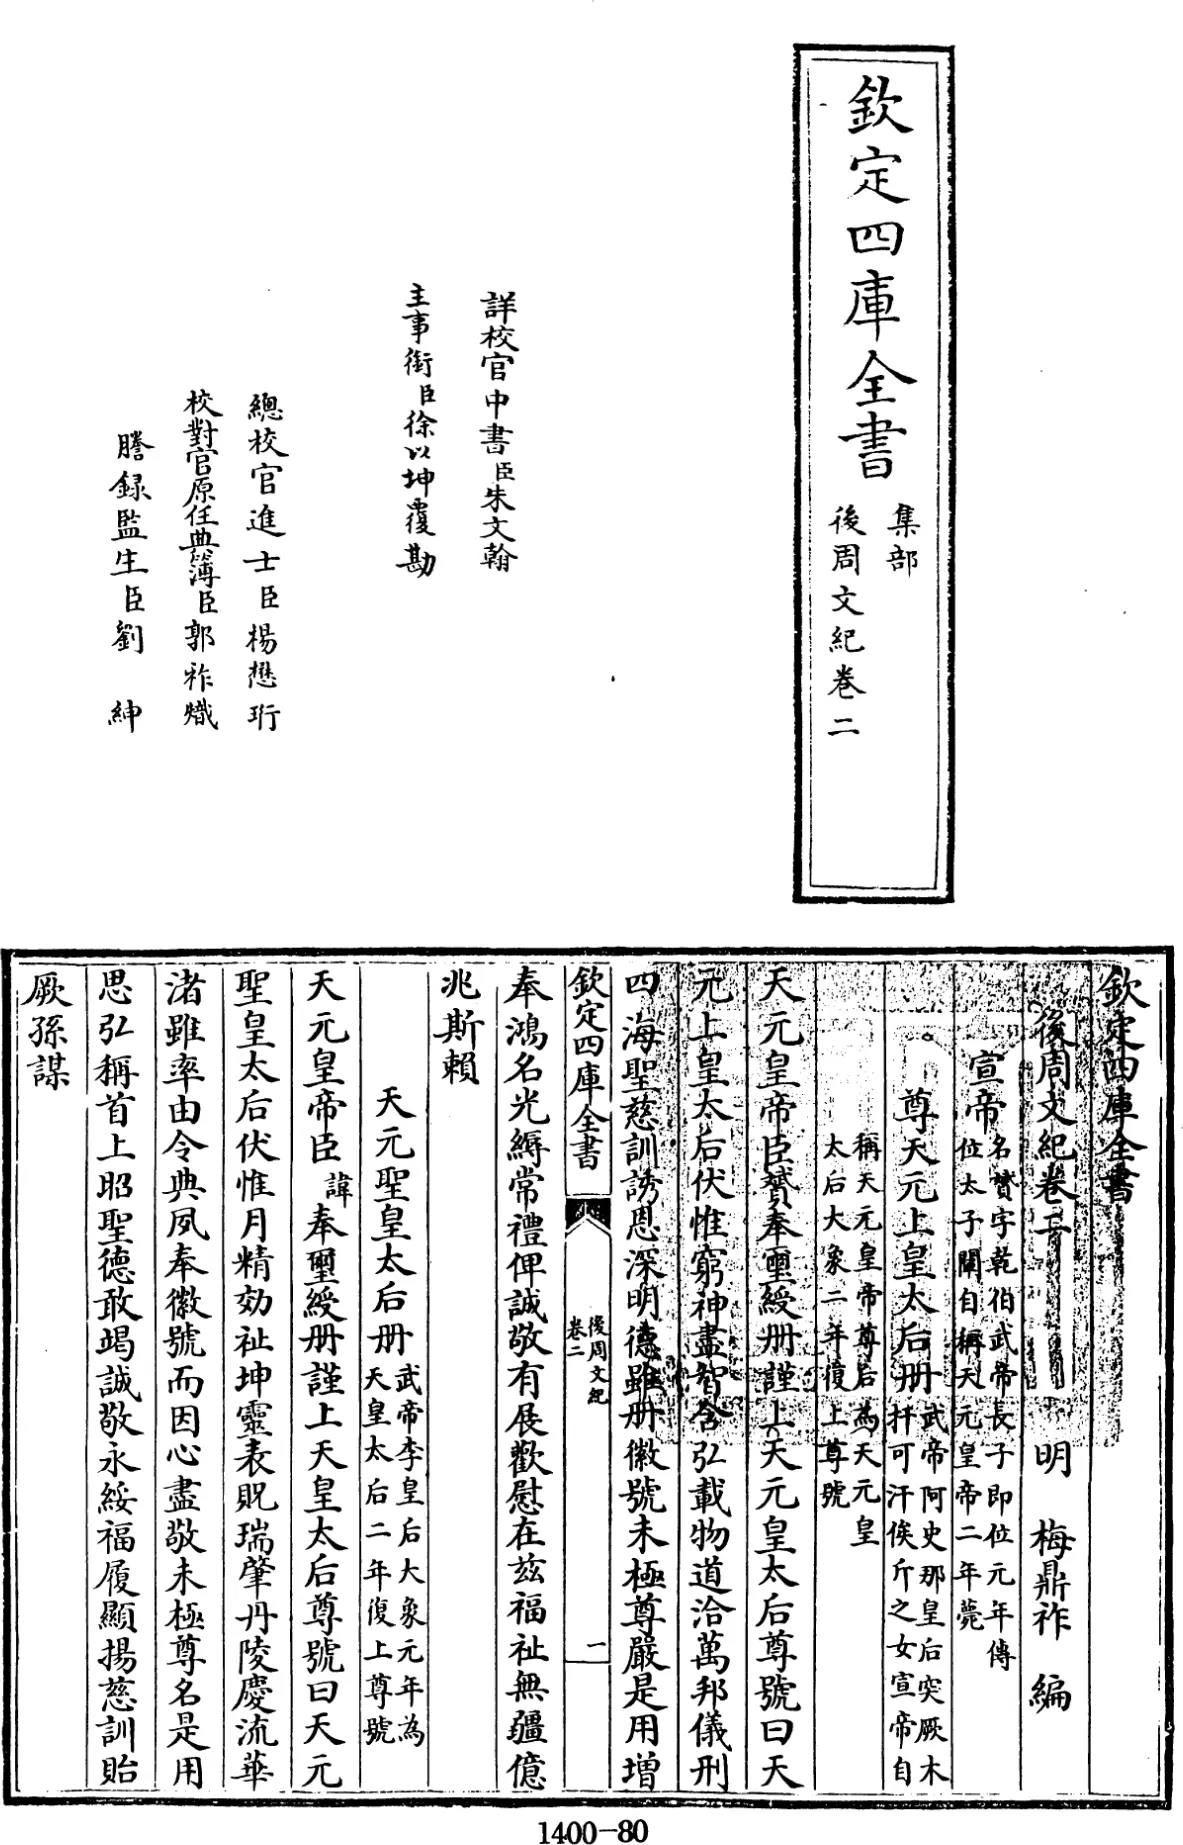 欽定四庫全書
集部
後周文紀卷二
詳校官中書臣朱文翰
主事銜臣徐以坤覆勘
總校官進士臣楊懋珩
校對官原任典簿臣郭祚熾
謄録監生臣劉紳
欽定四庫全書
後周文紀卷二 明 梅鼎祚 編
宣帝名贇字乾伯武帝長子即位元年傳
位太子闡自稱天元皇帝二年薨
尊天元上皇太后册武帝阿史那皇后突厥木
扞可汗俟斤之女宣帝自
稱天元皇帝尊后為天元皇
太后大象二年復上尊號
天元皇帝臣贇奉璽綬册謹上天元皇太后尊號曰天
元上皇太后伏惟窮神盡智含弘載物道洽萬邦儀刑
四海聖慈訓誘恩深明德雖册徽號未極尊嚴是用增
欽定四庫全書
後周文紀
卷二
一
奉鴻名光縟常禮俾誠敬有展歡慰在兹福祉無疆億
兆斯賴
天元聖皇太后册武帝李皇后大象元年為
天皇太后二年復上尊號
天元皇帝臣諱奉璽綬册謹上天皇太后尊號曰天元
聖皇太后伏惟月精効祉坤靈表貺瑞肇丹陵慶流華
渚雖率由令典夙奉徽號而因心盡敬未極尊名是用
思弘稱首上昭聖德敢竭誠敬永綏福履顯揚慈訓貽
厥孫謀
1400-80